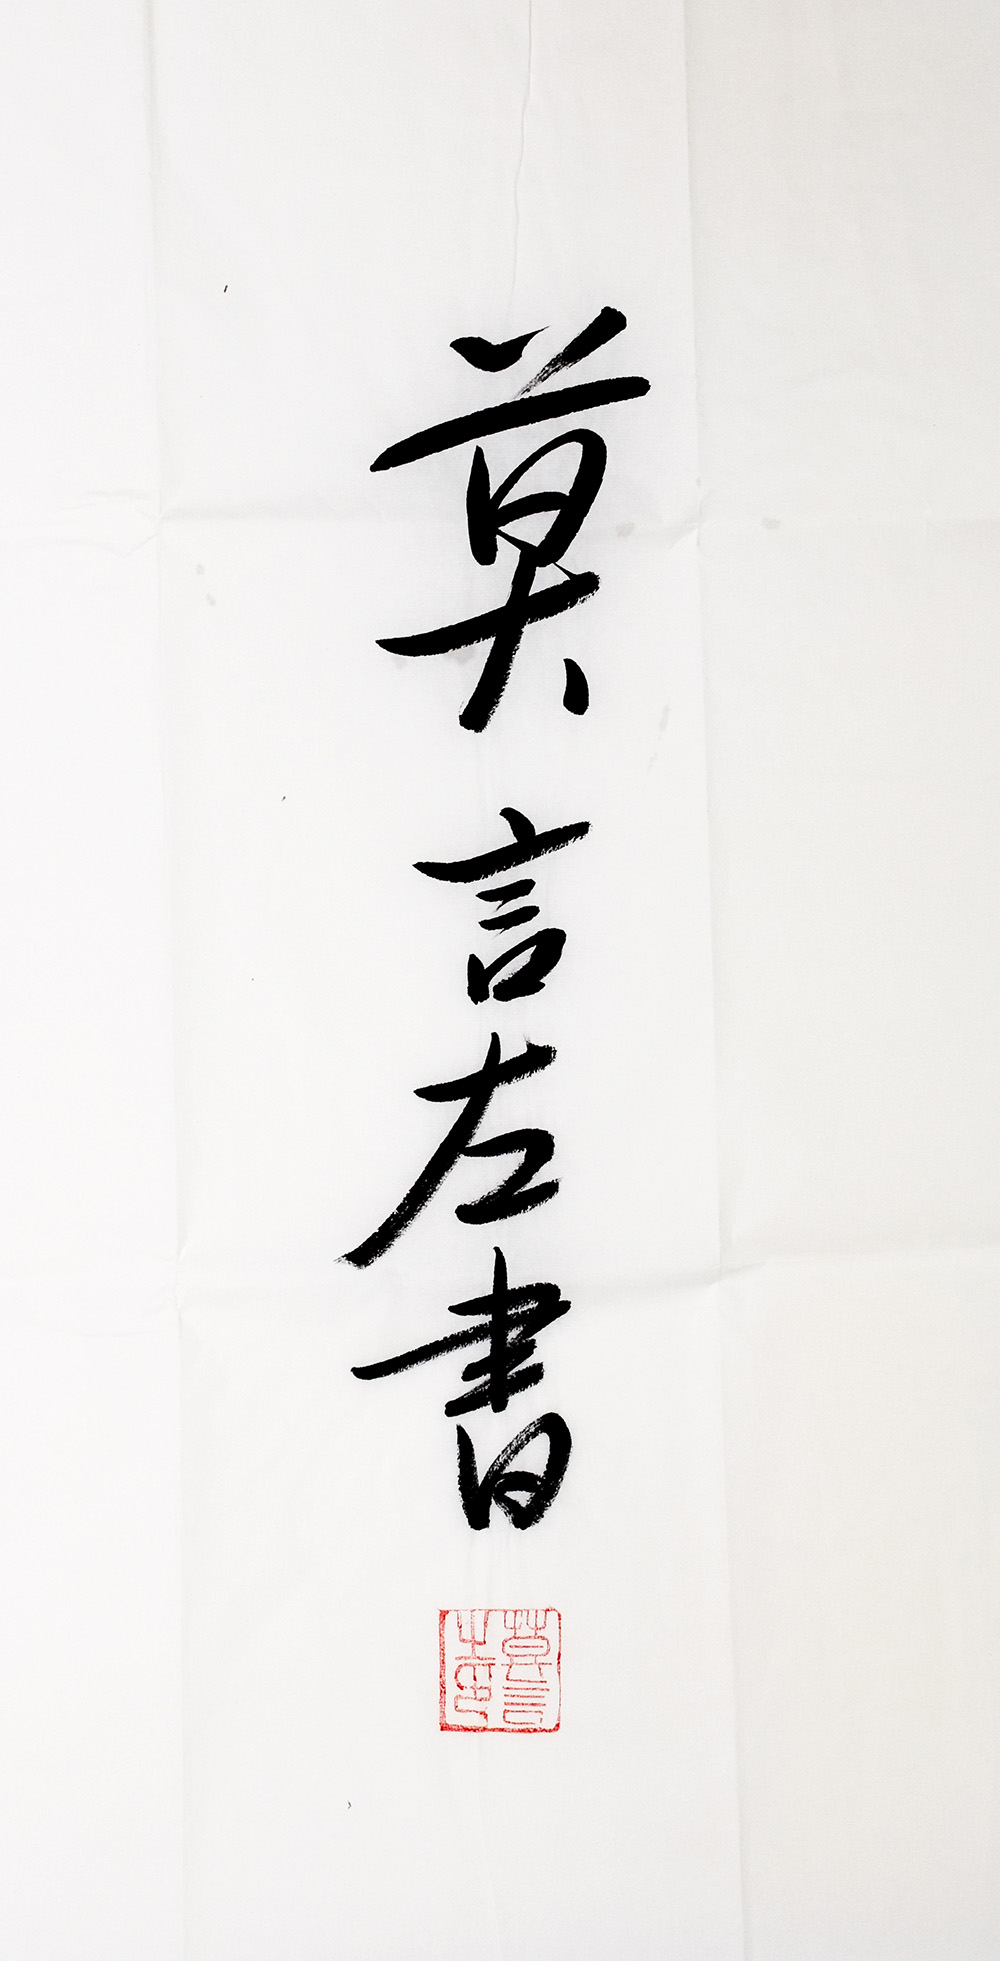 莫言左書
莫言之印